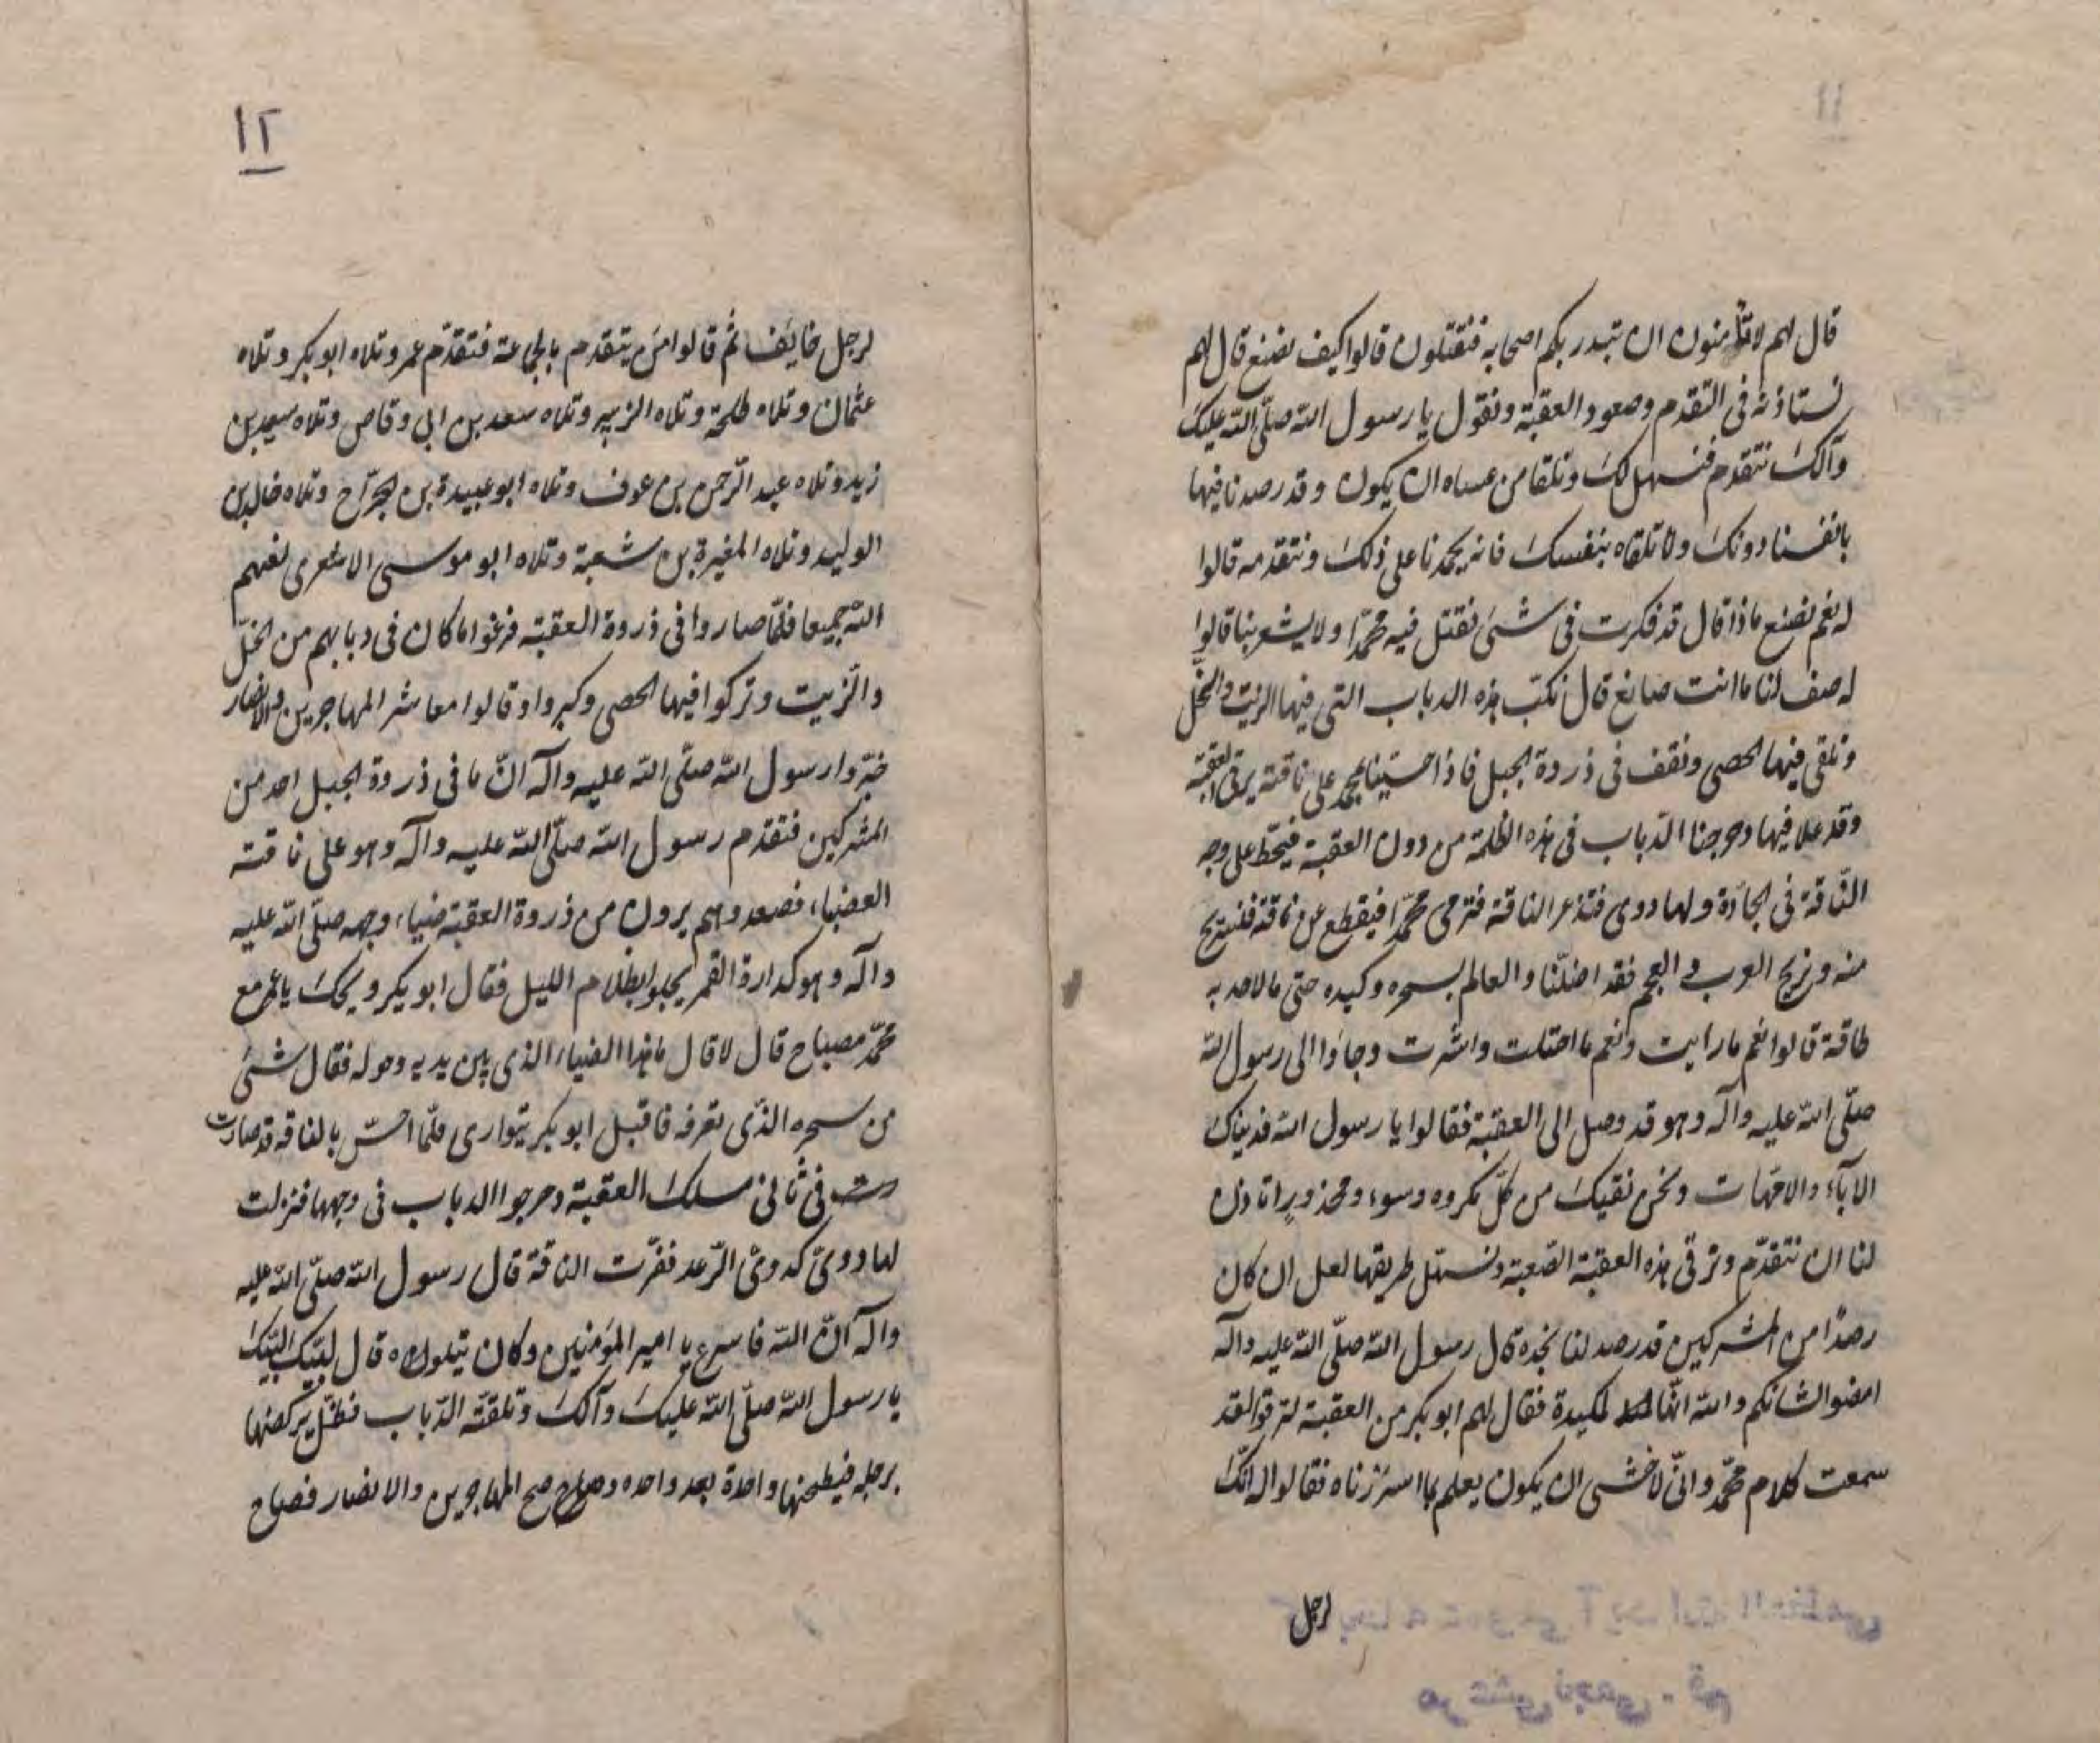 قال لهم لا تأمنون ان تبدر بكم اصحابه فتقتلون قالوا كيف نصنع قال لهم
نستاذنه فى التقدم وصعود العقبة ونقول يا رسول الله صلّى الله عليك
وآلك نتقدم فنسهل لك ونلقا من عساه ان يكون وقد رصدنا فيها
بانفسنا دونك ولا تلقاه بنفسك فانه يحمدنا على ذلك ونتقدمه قالوا
له نعم نصنع ماذا قال قد فكرت فى شئ نقتل فيه محمّدا ولا يشعر بنا قالوا
له صف لنا ما انت صانع قال نكبّ هذه الدباب التى فيها الزيت والخلّ
ونلقى فيها الحصى ونقف فى ذروة الجبل فاذا حسينا بمحمد على ناقته يرقى العقبة
وقد علا فيها دحرجنا الدّباب فى هذه الظلمة من دون العقبة فينحط على وجه
النّاقة فى الجادّة ولها دوى فتذعر الناقة فترمى محمّدا فيقطع عن ناقته فنستريح
منه ونريح العرب والعجم فقد اضلّنا والعالم بسحره وكيده حتى ما لاحد به
طاقة قالوا نعم ما رايت ونعم ما احتلت واشرت وجاؤا الى رسول الله
صلّى الله عليه وآله وهو قد وصل الى العقبة فقالوا يا رسول الله فديناك
الآباء والامّهات ونحن نقيك من كلّ مكروه وسوء ومحذور اتاذن
لنا ان نتقدّم ونرقى هذه العقبة الصّعبة ونسهل طريقها لعل ان كان
رصدا من المشركين قد رصد لنا نجده قال رسول الله صلّى الله عليه وآله
امضوا لشانكم والله انّها لمكيدة فقال لهم ابو بكر من العقبة لترقوا لقد
سمعت كلام محمّد وانّى لاخشى ان يكون يعلم بما اسررناه فقالوا له انّك
لرجل
١٢
لرجل خايف ثم قالوا من يتقدم بالجماعة فتقدّم عمر وتلاه ابو بكر وتلاه
عثمان وتلاه طلحة وتلاه الزبير وتلاه سعد بن ابى وقاص وتلاه سعيد بن
زيد وتلاه عبد الرّحمن بن عوف وتلاه ابو عبيدة بن الجرّاح وتلاه خالد بن
الوليد وتلاه المغيرة بن شعبة وتلاه ابو موسى الاشعرى لعنهم
الله جميعا فلمّا صاروا فى ذروة العقبة فرغوا ما كان فى دبابهم من الخلّ
والزّيت وتركوا فيها الحصى وكبروا وقالوا معاشر المهاجرين والانصار
خبّروا رسول الله صلّى الله عليه وآله انّ ما فى ذروة الجبل احد من
المشركين فتقدم رسول الله صلّى الله عليه وآله وهو على ناقته
العضباء فصعد وهم يرون من ذروة العقبة ضياء وجهه صلّى الله عليه
وآله وهو كدارة القمر يجلو ابظلام الليل فقال ابو بكر ويحك يا عمر مع
محمّد مصباح قال لا قال ما هذا الضياء الذى بين يديه وحوله فقال شئ
من سحره الذّى نعرفه فاقبل ابو بكر يتوارى فلمّا احسّ بالناقة قد صارت
فى ثانى مسلك العقبة دحرجوا الدباب فى وجهها فنزلت
لها دوىّ كدوىّ الرّعد فنفرت الناقة قال رسول الله صلّى الله عليه
وآله انّ الله فاسرع يا امير المؤمنين وكان يتلوه قال لبّيك لبّيك
يا رسول الله صلّى الله عليك وآلك وتلقّته الدّباب فظلّ يركضها
برجله فيطحنها واحدة بعد واحده وصاح صح المهاجرين والانصار فصاح